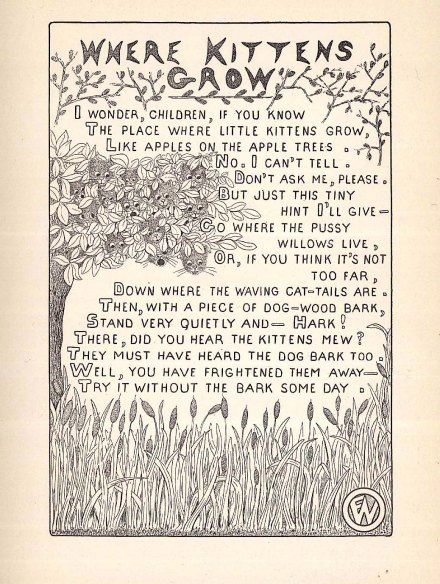 WHERE KITTENS
GROW
I WONDER, CHILDREN, IF YOU KNOW
THE PLACE WHERE LITTLE KITTENS GROW,
LIKE APPLES ON THE APPLE TREES.
NO. I CAN'T TELL.
DON'T ASK ME, PLEASE.
BUT JUST THIS TINY
HINT I'LL GIVE—
GO WHERE THE PUSSY
WILLOWS LIVE,
OR, IF YOU THINK IT'S NOT
TOO FAR,
DOWN WHERE THE WAVING CAT-TAILS ARE.
THEN, WITH A PIECE OF DOG-WOOD BARK,
STAND VERY QUIETLY AND— HARK!
THERE, DID YOU HEAR THE KITTENS MEW?
THEY MUST HAVE HEARD THE DOG BARK TOO.
WELL, YOU HAVE FRIGHTENED THEM AWAY—
TRY IT WITHOUT THE BARK SOME DAY.